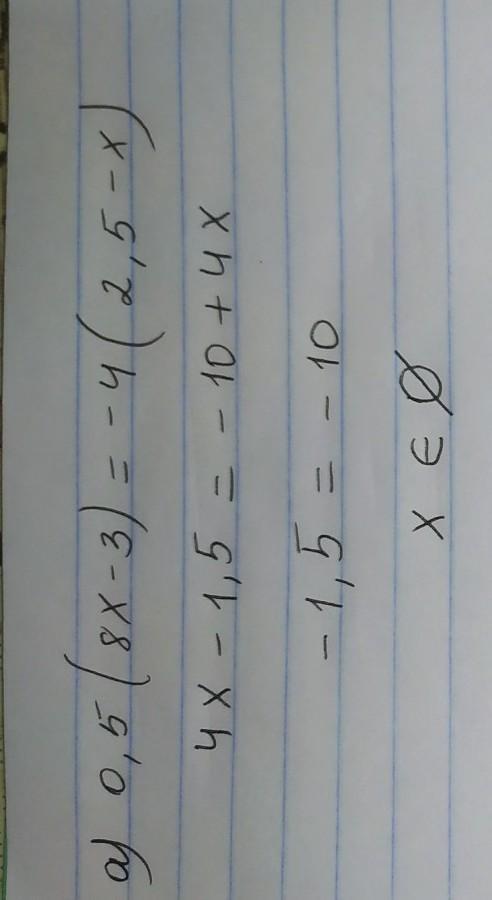 а) 0,5(8x-3)=-4(2,5-x)
4x-1,5=-10+4x
-1,5=-10
x∈∅